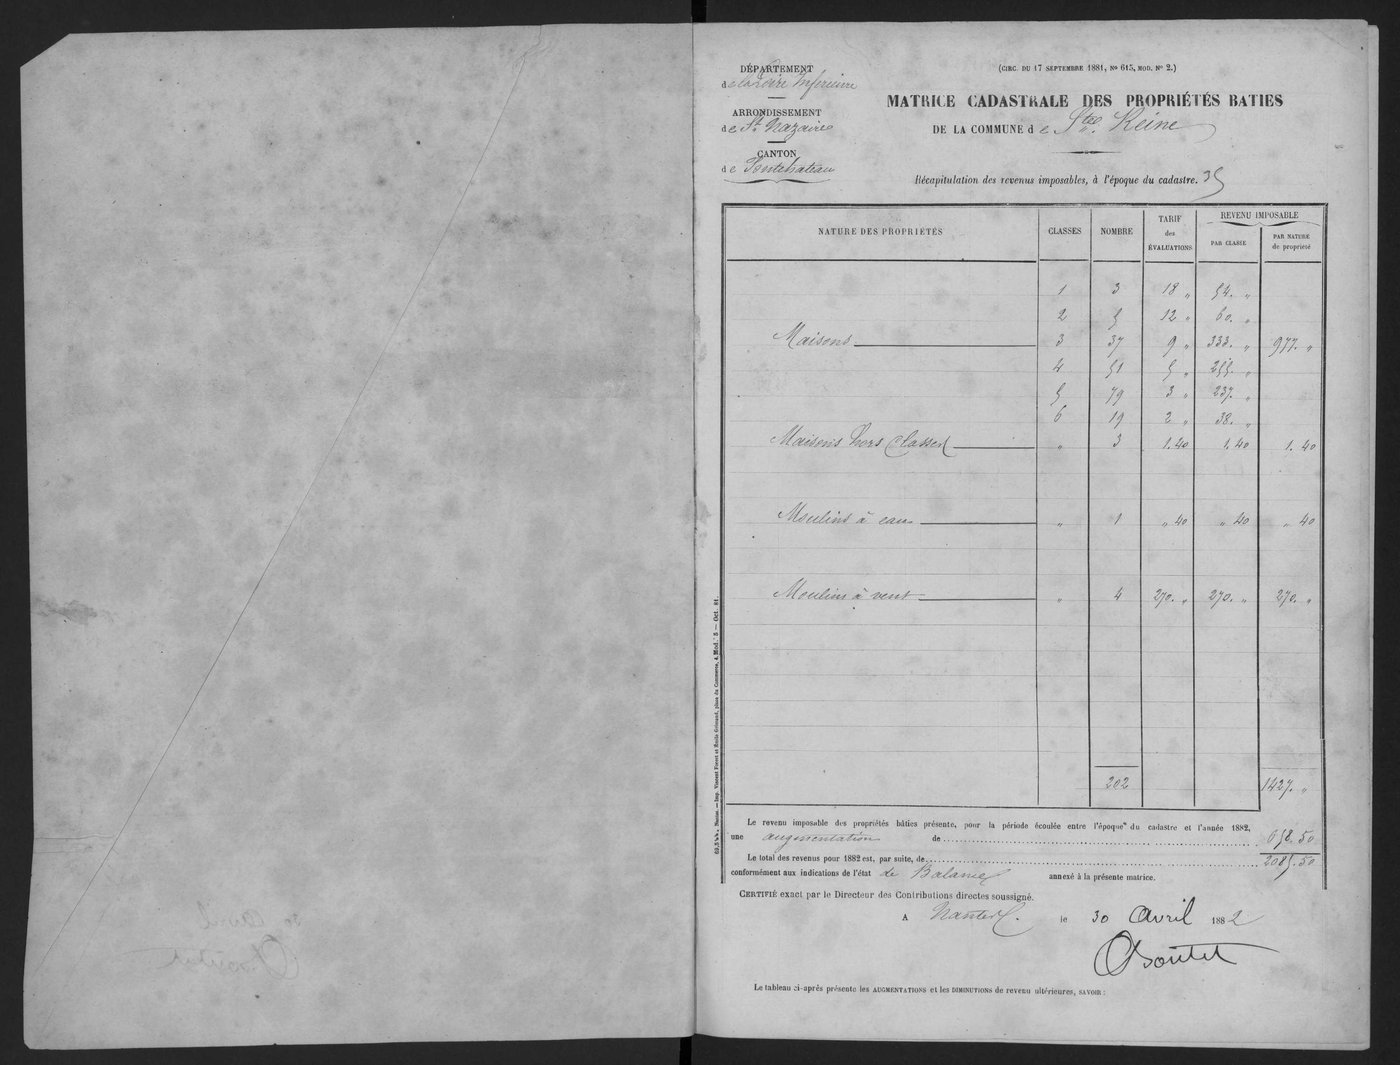 DÉPARTEMENT
de la Loire Inférieure
ARRONDISSEMENT
de St Nazaire
CANTON
de Pontchateau
(CIRC. DU 17 SEPTEMBRE 1881, No 615, MOD. No 2.)
MATRICE CADASTRALE DES PROPRIÉTÉS BATIES
DE LA COMMUNE de Ste Reine
Récapitulation des revenus imposables, à l'époque du cadastre. 35
NATURE DES PROPRIÉTÉS CLASSES NOMBRE TARIF des ÉVALUATIONS REVENU IMPOSABLE PAR CLASSE PAR NATURE de propriété
1 3 18 „ 54. „
2 5 12 „ 60. „
Maisons 3 37 9 „ 333. „ 977. „
4 51 5 „ 255. „
5 79 3 „ 237. „
6 19 2 „ 38. „
Maisons hors classes „ 3 1.40 1.40 1.40
Moulins à eau „ 1 „ 40 „ 40 „ 40
Moulins à vent „ 4 270. „ 270. „ 270. „
202 1427. „
Le revenu imposable des propriétés bâties présente, pour la période écoulée entre l'époque du cadastre et l'année 1882,
une augmentation de 658.50
Le total des revenus pour 1882 est, par suite, de 2085.50
conformément aux indications de l'état de Balance annexé à la présente matrice.
CERTIFIÉ exact par le Directeur des Contributions directes soussigné.
A Nantes le 30 Avril 1882
Le tableau ci-après présente les AUGMENTATIONS et les DIMINUTIONS de revenu ultérieures, SAVOIR :
Nantes. — Imp. Vincent Forest et Émile Grimaud, place du Commerce, 4. Mod. 5 — Oct. 81.